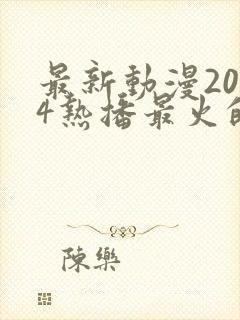 最新動漫20
4熱播最火的
陳樂